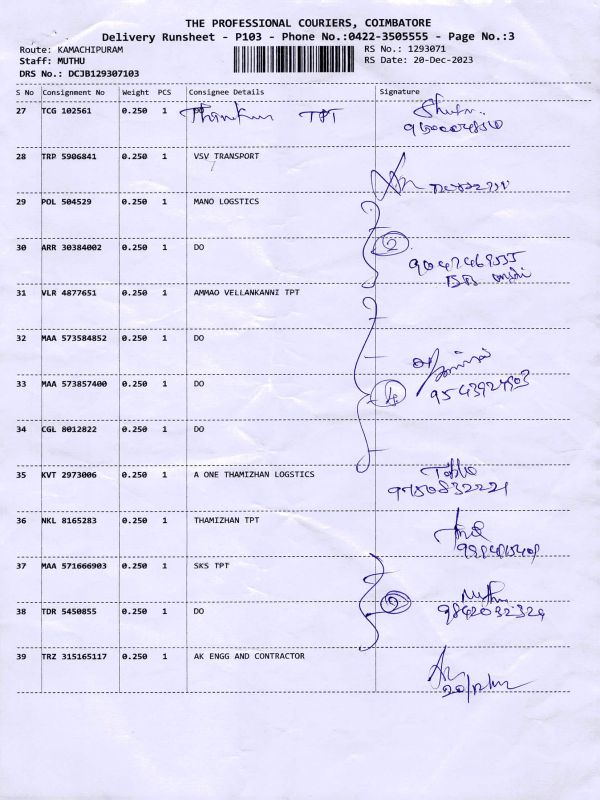 THE PROFESSIONAL COURIERS, COIMBATORE
Delivery Runsheet - P103 - Phone No.:0422-3505555 - Page No.:3
Route: KAMACHIPURAM RS No.: 1293071
Staff: MUTHU RS Date: 20-Dec-2023
DRS No.: DCJB129307103
S No Consignment No Weight PCS Consignee Details Signature
27 TCG 102561 0.250 1 TPT
28 TRP 5906841 0.250 1 VSV TRANSPORT
29 POL 504529 0.250 1 MANO LOGSTICS
30 ARR 30384002 0.250 1 DO 2
31 VLR 4877651 0.250 1 AMMAO VELLANKANNI TPT
32 MAA 573584852 0.250 1 DO
33 MAA 573857400 0.250 1 DO 4
9543924903
34 CGL 8012822 0.250 1 DO
35 KVT 2973006 0.250 1 A ONE THAMIZHAN LOGSTICS
9750832221
36 NKL 8165283 0.250 1 THAMIZHAN TPT
37 MAA 571666903 0.250 1 SKS TPT
38 TDR 5450855 0.250 1 DO 2
9842032324
39 TRZ 315165117 0.250 1 AK ENGG AND CONTRACTOR